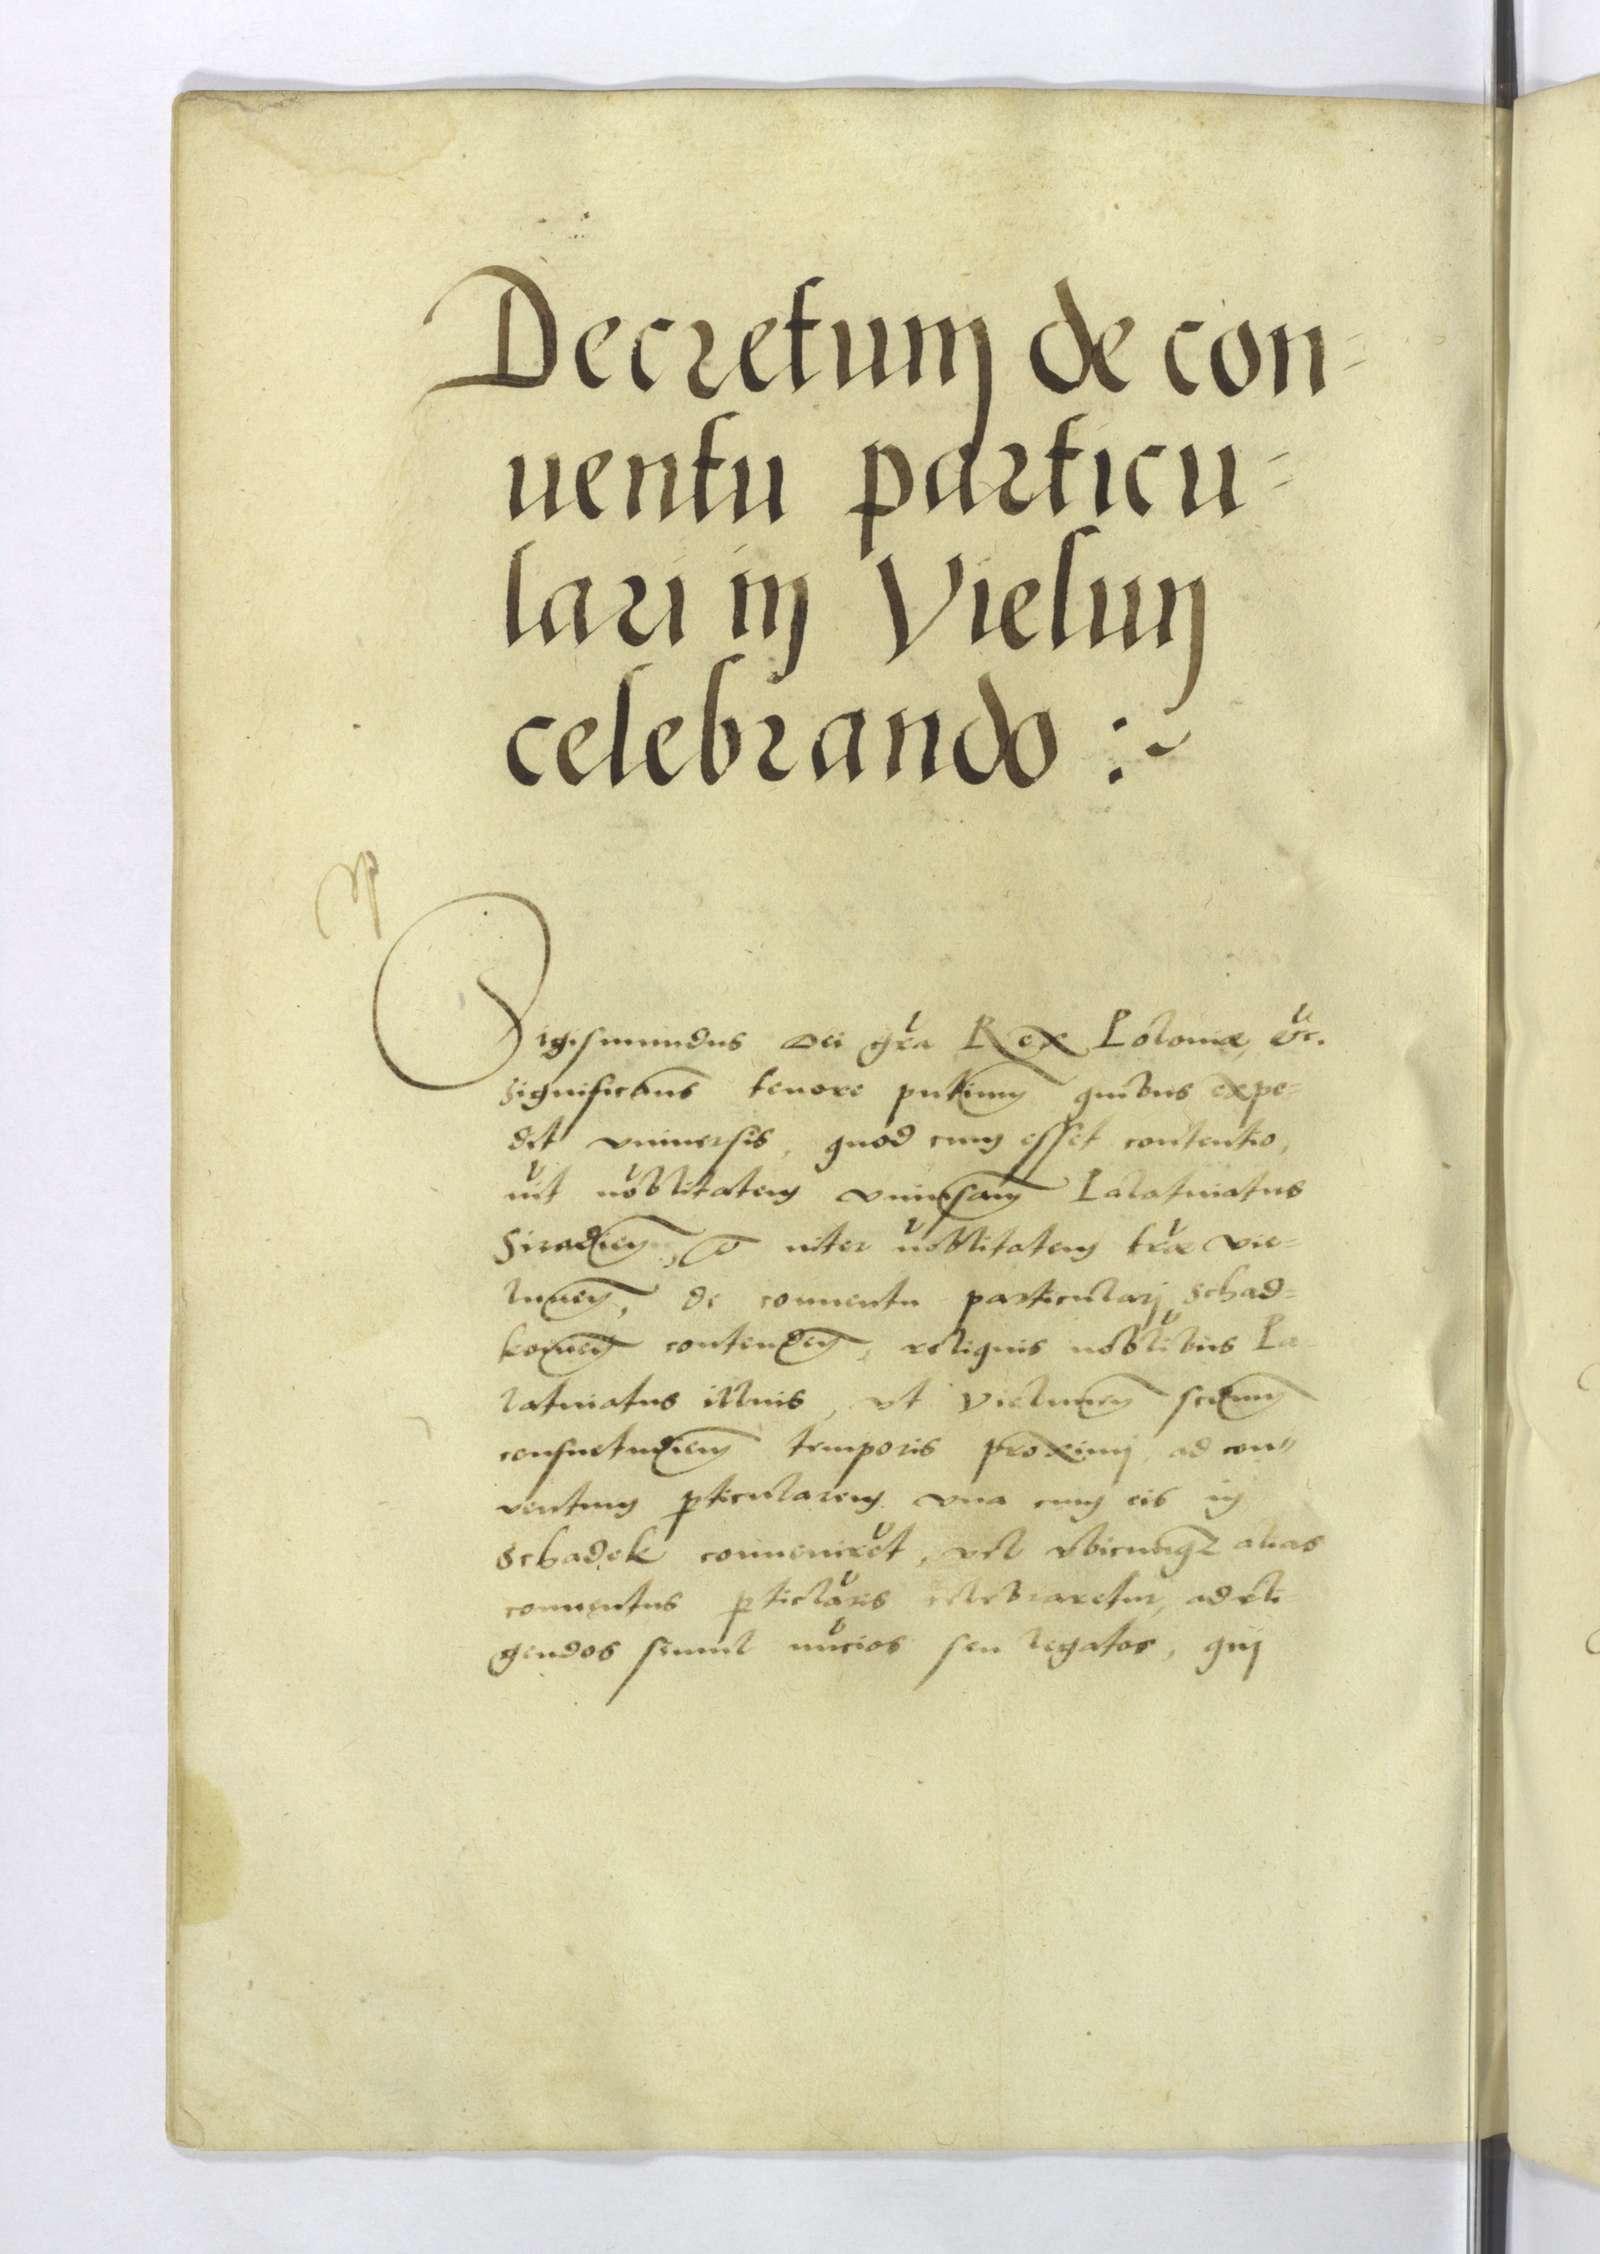 Decretum de con=
uentu particu=
lari in Vielun
celebrando :~
Sigismundus Dei gra Rex Poloniæ, &c.
significams tenore pntium quibus expe=
dit vniuersis, quod cum esset contentio,
int nobilitatem vniuersam Palatinatus
Siradien, & inter nobilitatem træ Vie=
lunen, de conuentu particularj Schad=
kouien contenden, reliquis nobilibus Pa-
latinatus illius, vt Vielunen scdum
consuetudinem temporis proximj ad con=
ventum particularem vna cum eis in
Schadek conueniret, vel vbicunqz alias
conuentus particlaris celebraretur, ad eli-
gendos simul nucios seu legatos, quj